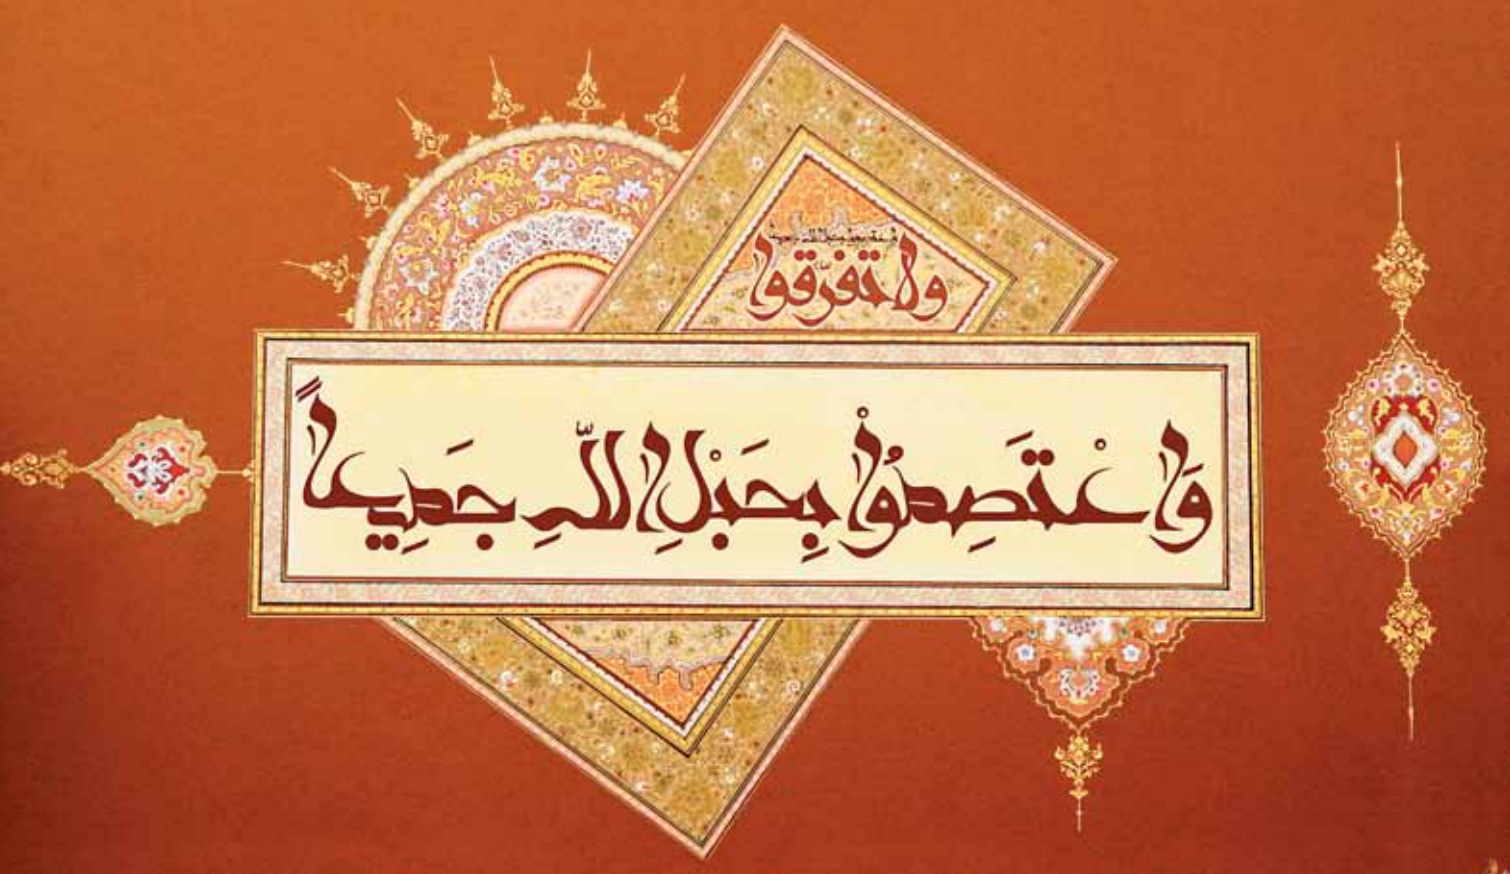 ولا تفرّقوا
وَاعْتَصِمُوْا بِحَبْلِ اللّهِ جَمِيعاً